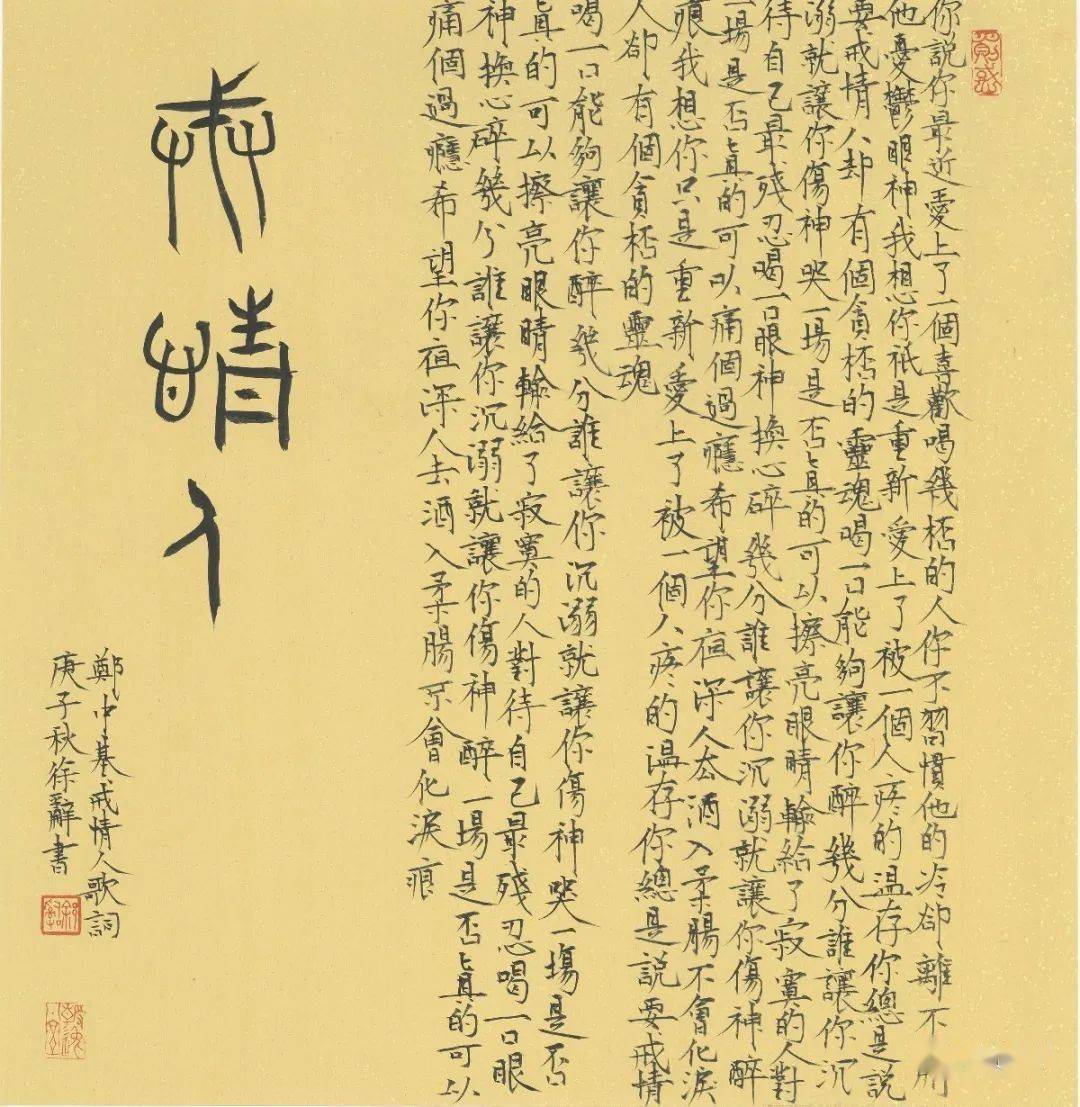 你說你最近愛上了一個喜歡喝幾桮的人你不習慣他的冷卻離不開
他憂鬱眼神我想你祇是重新愛上了被一個人疼的温存你總是説
要戒情人却有個貪桮的靈魂喝一口能夠讓你醉幾分誰讓你沉
溺就讓你傷神哭一場是否真的可以擦亮眼睛輸給了寂寞的人對
待自己最殘忍喝一口眼神換心碎幾分誰讓你沉溺就讓你傷神醉
一場是否真的可以痛個過癮希望你夜深人去酒入柔腸不會化淚
痕我想你只是重新愛上了被一個人疼的温存你總是説要戒情
人卻有個貪桮的靈魂
喝一口能夠讓你醉幾分誰讓你沉溺就讓你傷神哭一場是否
真的可以擦亮眼睛輸給了寂寞的人對待自己最殘忍喝一口眼
神換心碎幾分誰讓你沉溺就讓你傷神醉一場是否真的可以
痛個過癮希望你夜深人去酒入柔腸不會化淚痕
戒情人
鄭中基戒情人歌詞
庚子秋徐辭書